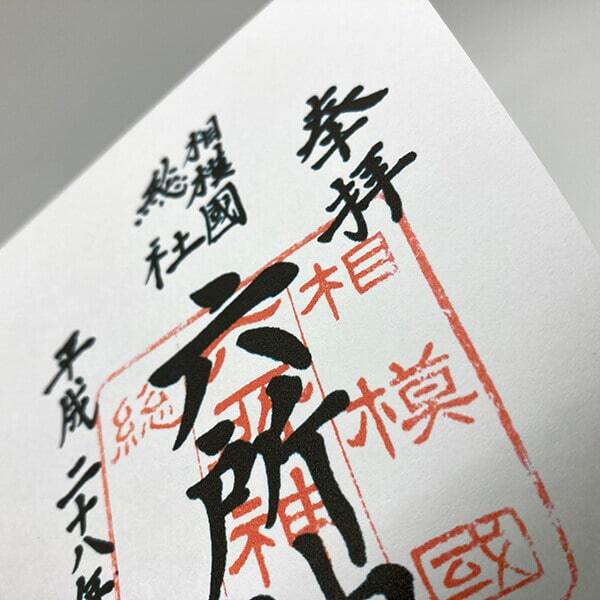 奉拝
相模國
総社
六所
平成二十八年
相模國
六所神
総